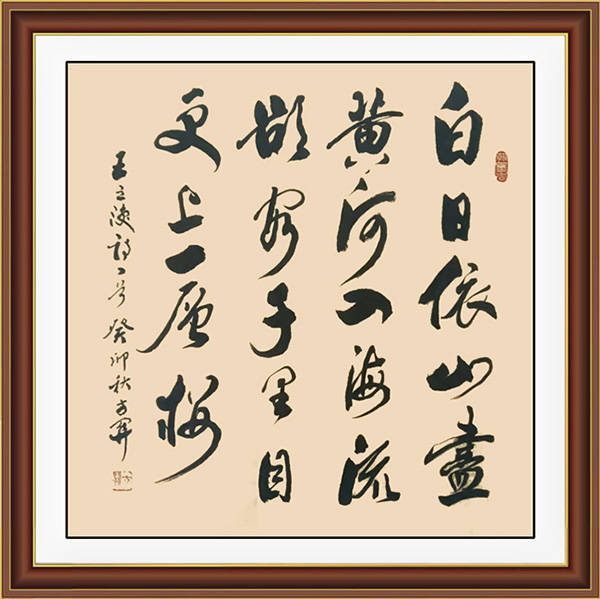 白日依山盡
黄河入海流
欲窮千里目
更上一层楼
王之涣詩一首 癸卯秋